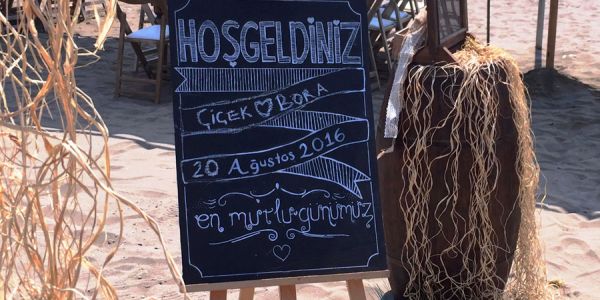 HOŞGELDİNİZ
Çiçek ♡ Bora
20 Ağustos 2016
en mutlu günümüz